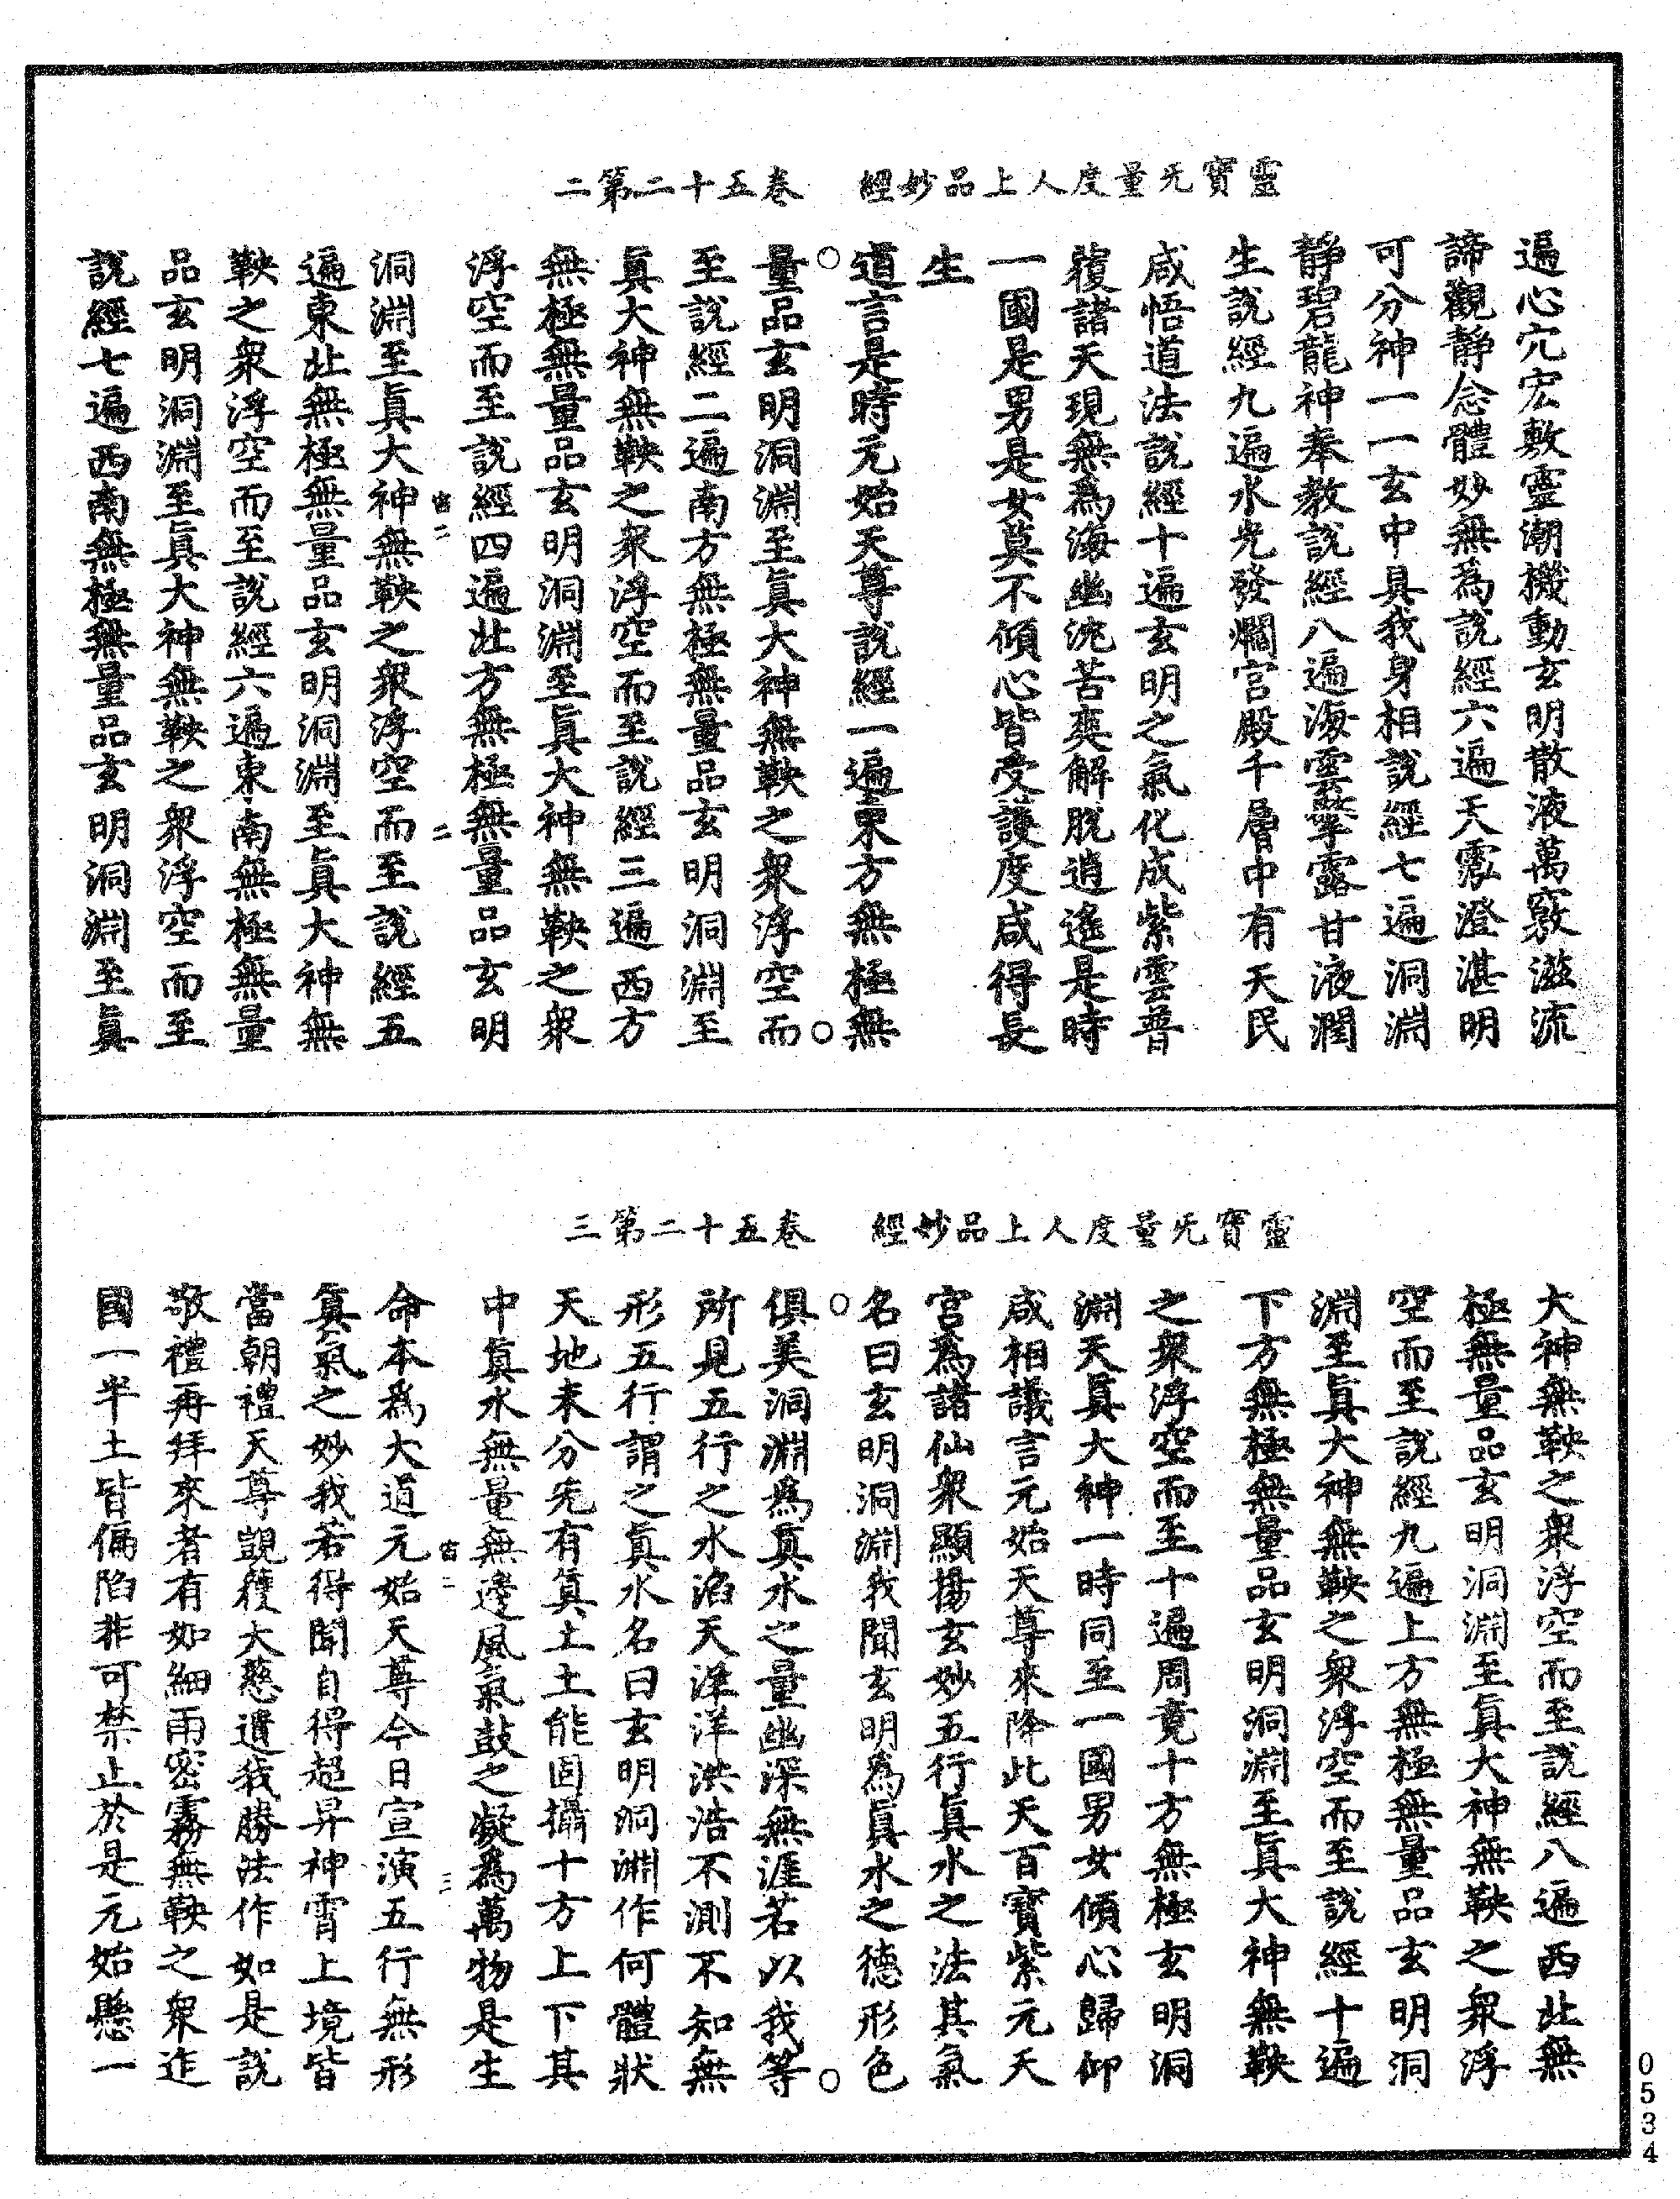 靈寶无量度人上品妙經　卷五十二第二
遍心穴宏敷靈潮機動玄明散液萬竅滋流
諦觀靜念體妙無爲說經六遍天霧澄湛明
可分神一一玄中具我身相說經七遍洞淵
靜碧龍神奉教說經八遍海雲擎露甘液潤
生說經九遍水光發爛宮殿千層中有天民
咸悟道法說經十遍玄明之氣化成紫雲普
覆諸天現無爲海幽沈苦爽解脫逍遙是時
一國是男是女莫不傾心皆受護度咸得長
生
道言是時元始天尊說經一遍東方無極無
量品玄明洞淵至眞大神無鞅之衆浮空而
至說經二遍南方無極無量品玄明洞淵至
眞大神無鞅之衆浮空而至說經三遍西方
無極無量品玄明洞淵至眞大神無鞅之衆
浮空而至說經四遍北方無極無量品玄明
宙二　二
洞淵至眞大神無鞅之衆浮空而至說經五
遍東北無極無量品玄明洞淵至眞大神無
鞅之衆浮空而至說經六遍東南無極無量
品玄明洞淵至眞大神無鞅之衆浮空而至
說經七遍西南無極無量品玄明洞淵至眞
靈寶无量度人上品妙經　卷五十二第三
大神無鞅之衆浮空而至說經八遍西北無
極無量品玄明洞淵至眞大神無鞅之衆浮
空而至說經九遍上方無極無量品玄明洞
淵至眞大神無鞅之衆浮空而至說經十遍
下方無極無量品玄明洞淵至眞大神無鞅
之衆浮空而至十遍周竟十方無極玄明洞
淵天眞大神一時同至一國男女傾心歸仰
咸相議言元始天尊來降此天百寶紫元天
宮爲諸仙衆顯揚玄妙五行眞水之法其氣
名曰玄明洞淵我聞玄明爲眞水之德形色
俱美洞淵爲眞水之量幽深無涯若以我等
所見五行之水滔天洋洋洪浩不測不知無
形五行謂之眞水名曰玄明洞淵作何體狀
天地未分先有眞土土能固攝十方上下其
中眞水無量無邊風氣鼓之凝爲萬物是生
宙二　三
命本爲大道元始天尊今日宣演五行無形
眞氣之妙我若得聞自得超昇神霄上境皆
當朝禮天尊覬獲大慈遺我勝法作如是說
敬禮再拜來者有如細雨密霧無鞅之衆迮
國一半土皆偏陷非可禁止於是元始懸一
0534